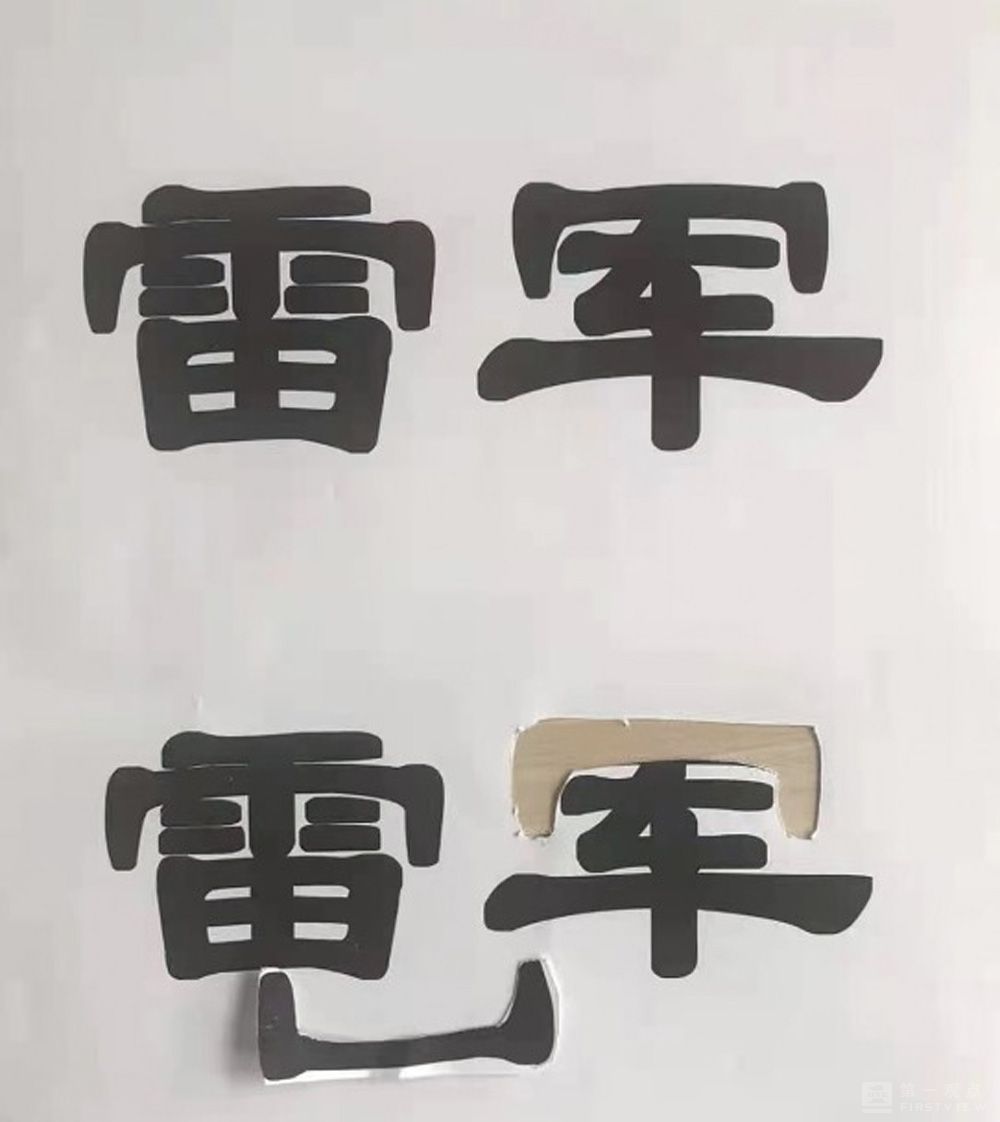 雷军
雷军
第一观点
FIRSTVIEW